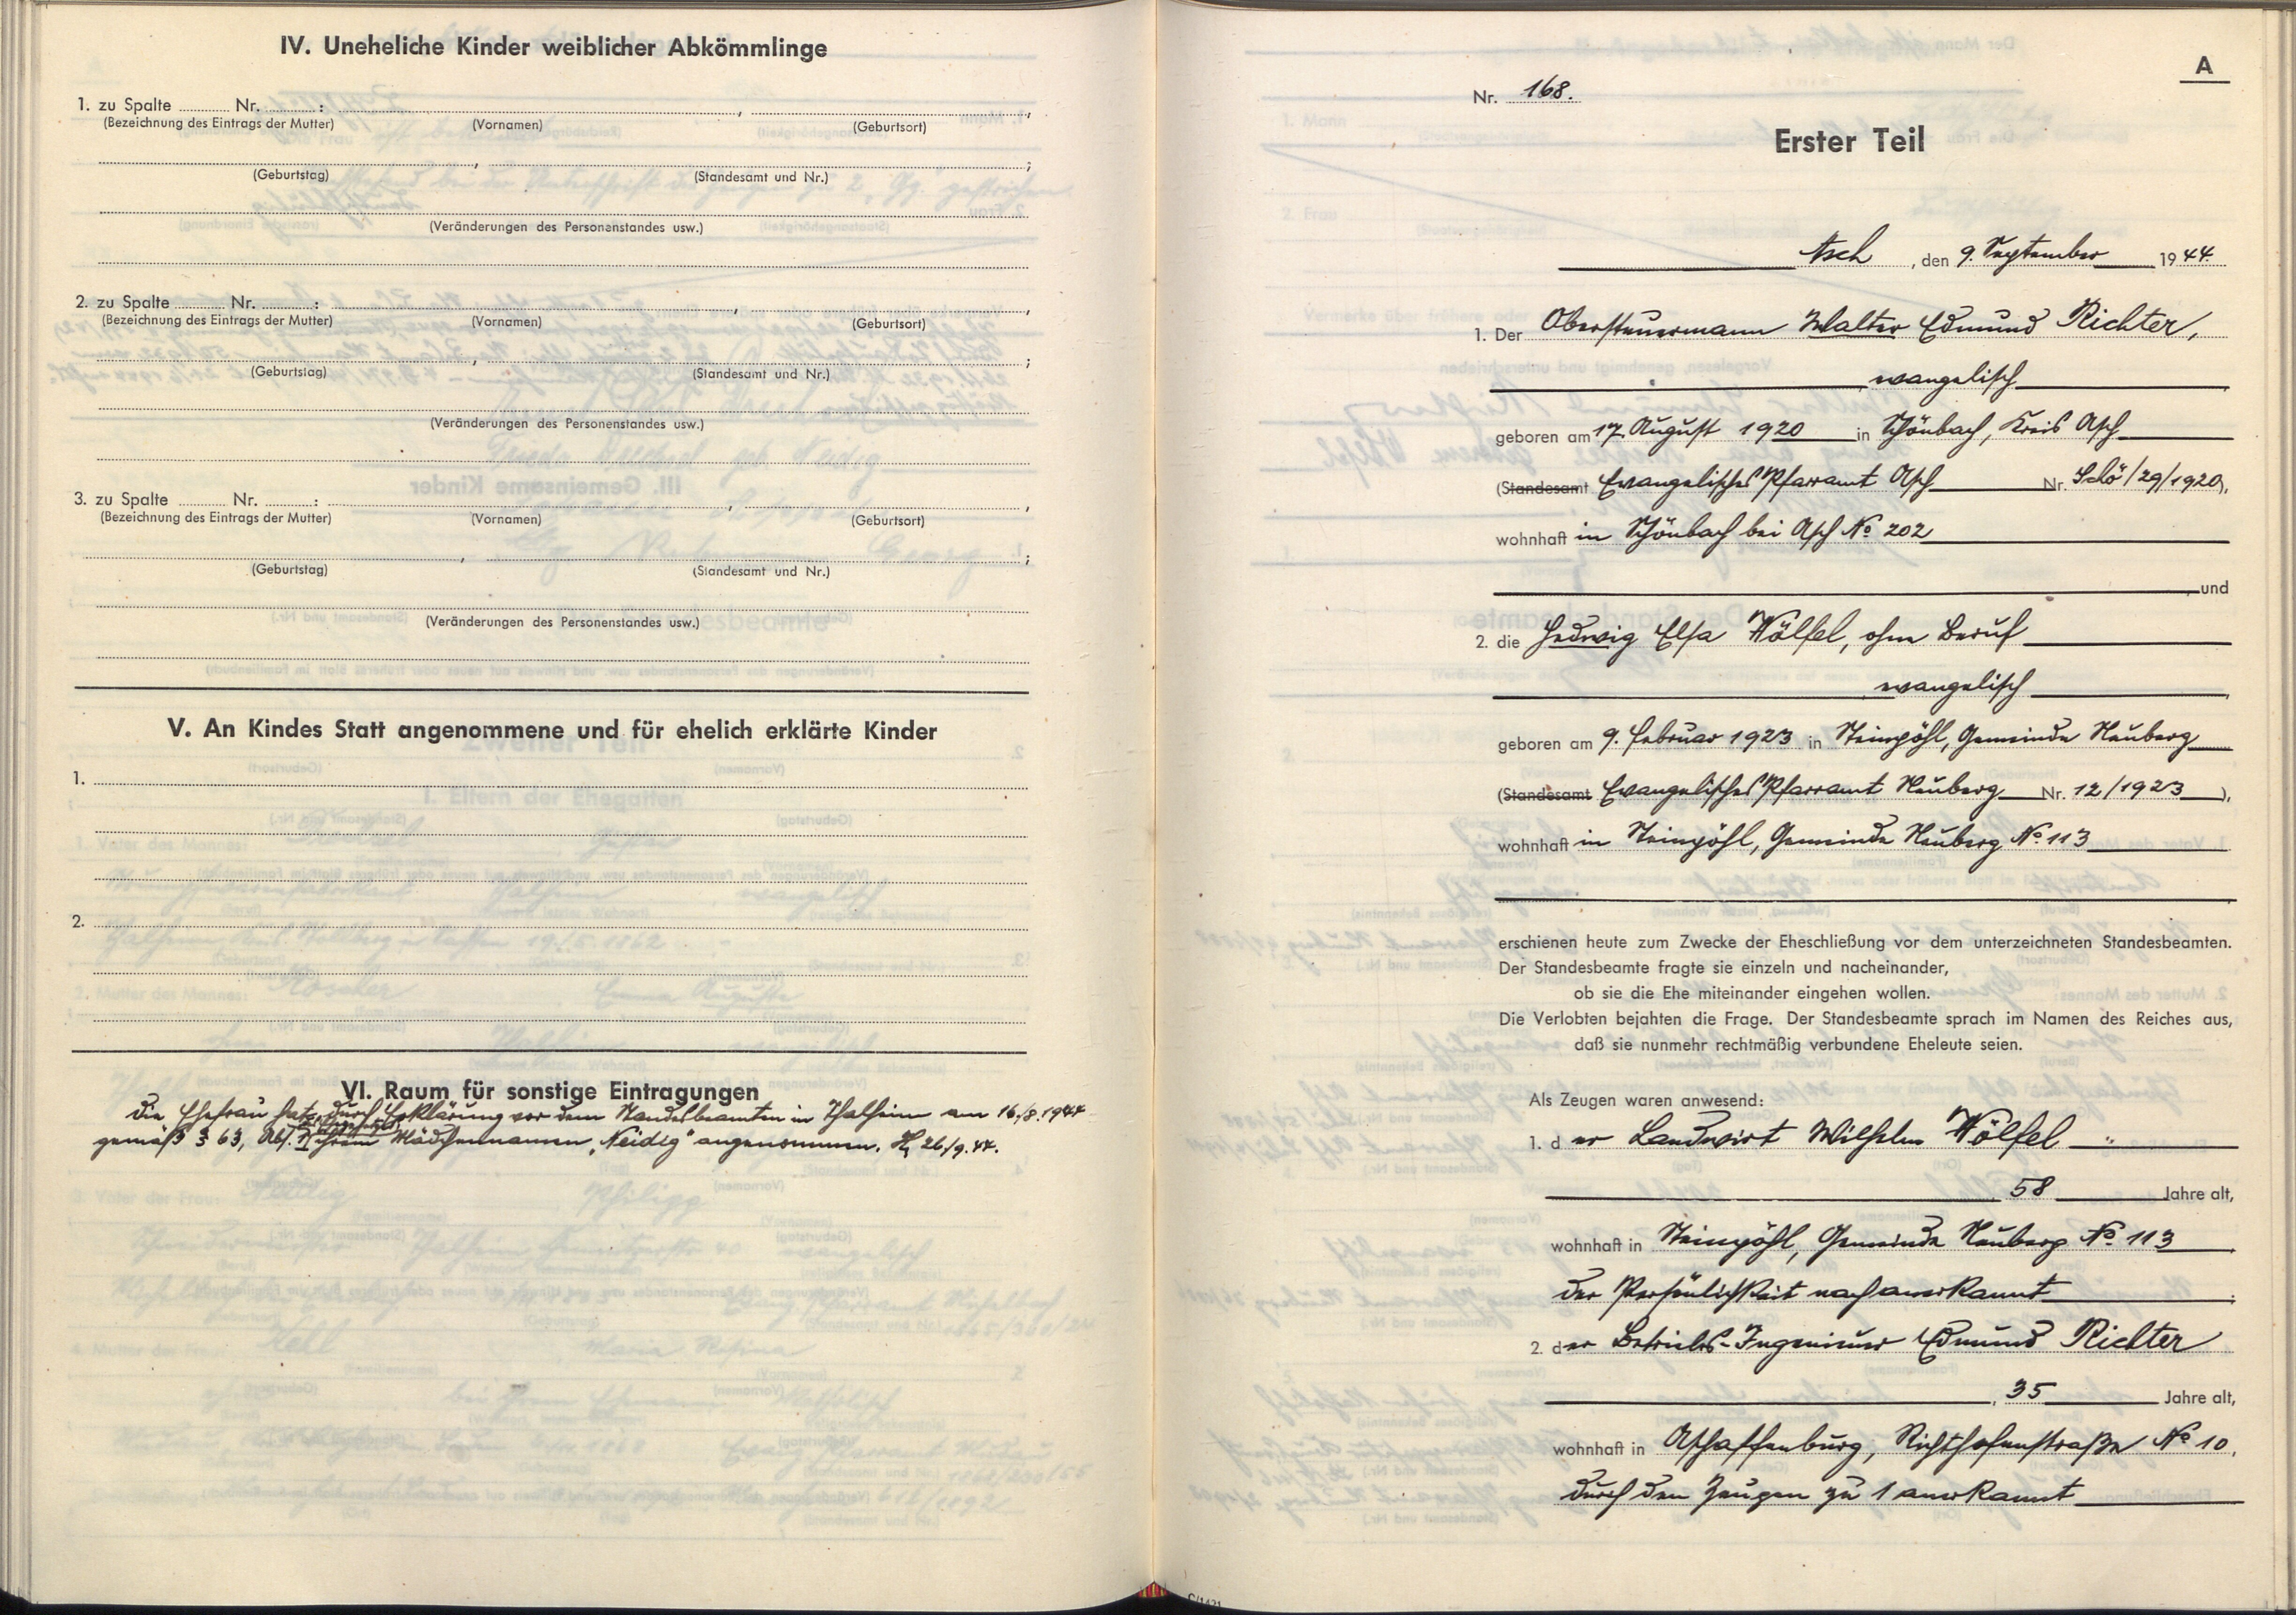 IV. Uneheliche Kinder weiblicher Abkömmlinge
1. zu Spalte Nr. : , ,
(Bezeichnung des Eintrags der Mutter) (Vornamen) (Geburtsort)
, ;
(Geburtstag) (Standesamt und Nr.)
(Veränderungen des Personenstandes usw.)
2. zu Spalte Nr. : , ,
(Bezeichnung des Eintrags der Mutter) (Vornamen) (Geburtsort)
, ;
(Geburtstag) (Standesamt und Nr.)
(Veränderungen des Personenstandes usw.)
3. zu Spalte Nr. : , ,
(Bezeichnung des Eintrags der Mutter) (Vornamen) (Geburtsort)
, ;
(Geburtstag) (Standesamt und Nr.)
(Veränderungen des Personenstandes usw.)
V. An Kindes Statt angenommene und für ehelich erklärte Kinder
1.
2.
VI. Raum für sonstige Eintragungen
Die Ehefrau hat durch Erklärung vor dem Standesbeamten in Thalheim am 16./8.1944
gemäß § 63, Abs. ihren Mädchennamen „Neidig" angenommen. 26/9.44.
A
Nr. 168.
Erster Teil
Asch, den 9. September 1944.
1. Der Obersteuermann Walter Edmund Richter,
evangelisch
geboren am 17. August 1920 in Schönbach, Kreis Asch
(Standesamt Evangelisches Pfarramt Asch Nr. Schö/29/1920),
wohnhaft in Schönbach bei Asch No 202
und
2. die Hedwig Elsa Wölfel, ohne Beruf
evangelisch
geboren am 9. Februar 1923 in Steinpöhl, Gemeinde Neuberg
(Standesamt Evangelisches Pfarramt Neuberg Nr. 12/1923),
wohnhaft in Steinpöhl, Gemeinde Neuberg No 113
erschienen heute zum Zwecke der Eheschließung vor dem unterzeichneten Standesbeamten.
Der Standesbeamte fragte sie einzeln und nacheinander,
ob sie die Ehe miteinander eingehen wollen.
Die Verlobten bejahten die Frage. Der Standesbeamte sprach im Namen des Reiches aus,
daß sie nunmehr rechtmäßig verbundene Eheleute seien.
Als Zeugen waren anwesend:
1. der Landwirt Wilhelm Wölfel
58 Jahre alt,
wohnhaft in Steinpöhl, Gemeinde Neuberg No 113
der Persönlichkeit nach anerkannt;
2. der Betriebs-Ingenieur Edmund Richter
, 35 Jahre alt,
wohnhaft in Aschaffenburg, Richthofenstraße No 10,
durch den Zeugen zu 1 anerkannt